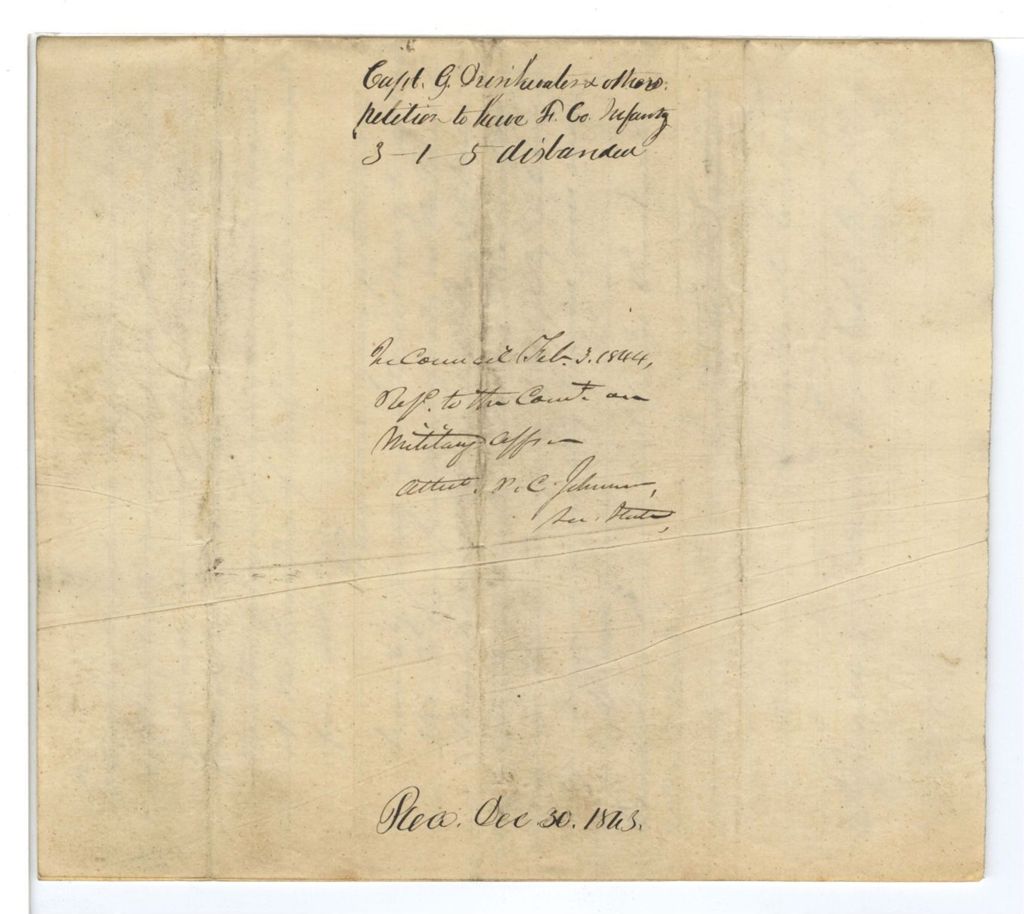 Capt. G. Drinkwater & others.
petition to have F. Co. Infantry
3 - 1 - 5 disbanded
In Council Feb. 3. 1844,
Refd. to the Comte. on
Military Affrs
Attest. P. C. Johnson,
Sec. State,
Recd. Dec 30. 1843.